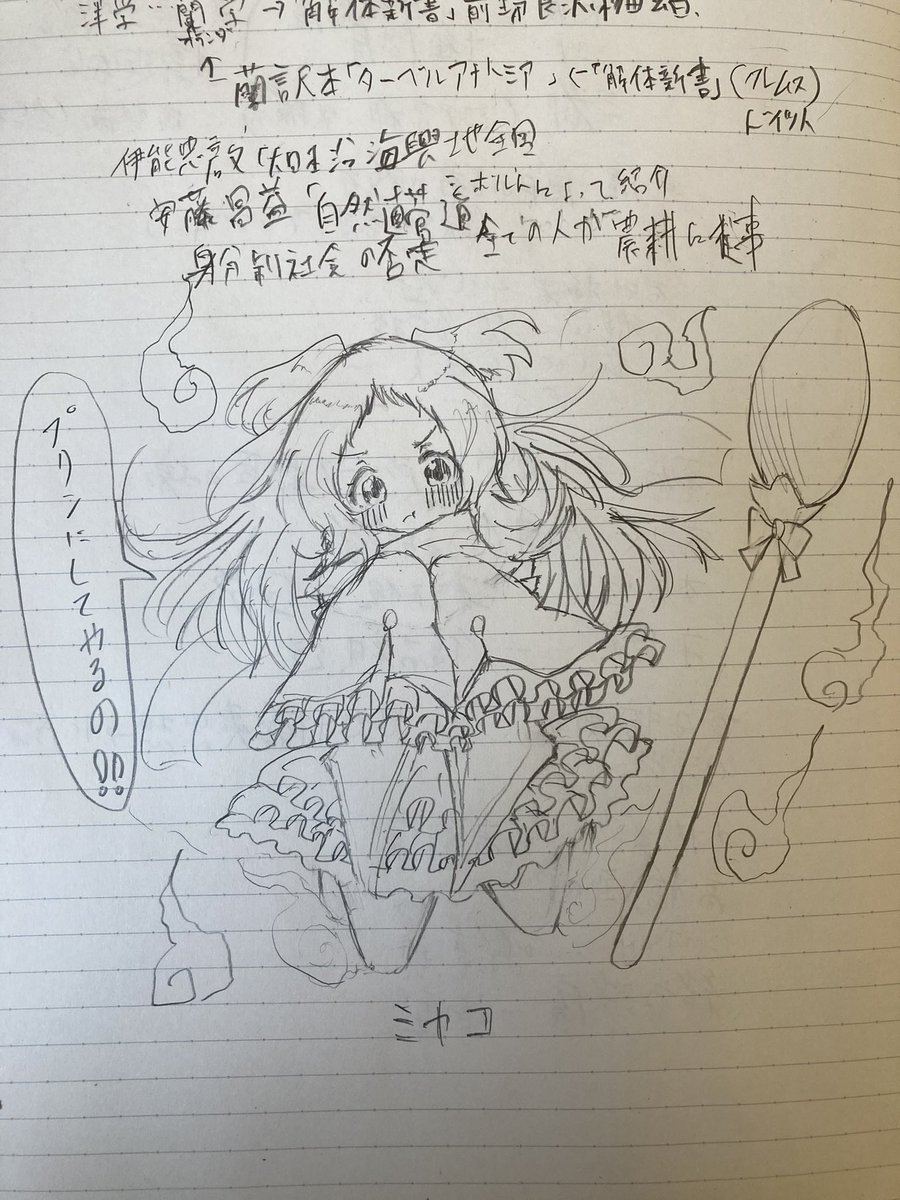 洋学 蘭学 →「解体新書」前野良沢
オランダ
↑ 蘭訳本「ターヘルアナトミア」←「解体新書」(クルムス)
ドイツ人
伊能忠敬「大日本沿海輿地全図」
安藤昌益「自然真営道」 全ての人が農耕に従事
によって紹介
身分制社会の否定
プリンにしてやるの!!
ミヤコ